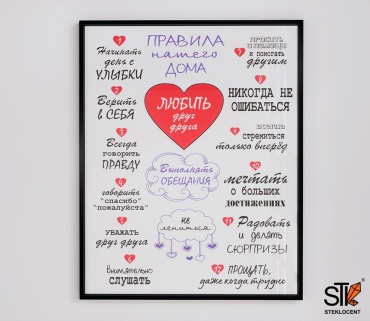 ПРАВИЛА
нашего
ДОМА
1
Начинать
день с
УЛЫБКИ
2
Верить
в СЕБЯ
3
Всегда
говорить
ПРАВДУ
4
говорить
"спасибо"
"пожалуйста"
5
УВАЖАТЬ
друг друга
6
Внимательно
слушать
ЛЮБИТЬ
друг
друга
Выполнять
ОБЕЩАНИЯ
не
лениться
просить
о помощи
и помогать
другим
НИКОГДА НЕ
ОШИБАТЬСЯ
всегда
стремиться
только вперёд
10
мечтать
о больших
достижениях
11
Радовать
и делать
СЮРПРИЗЫ
12
ПРОЩАТЬ,
даже когда трудно
STK
STEKLOCENT